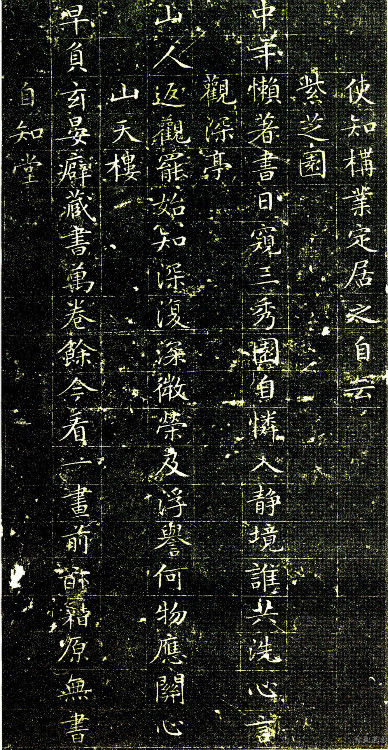 使知構業定居之自云
紫芝園
中年懶著書日窺三秀園自憐入静境誰共洗心言
觀深亭
山人返觀罷始知深復深微榮及浮譽何物應關心
山天樓
早負玄晏癖藏書萬卷餘今看一畫前酢籍原無書
自知堂